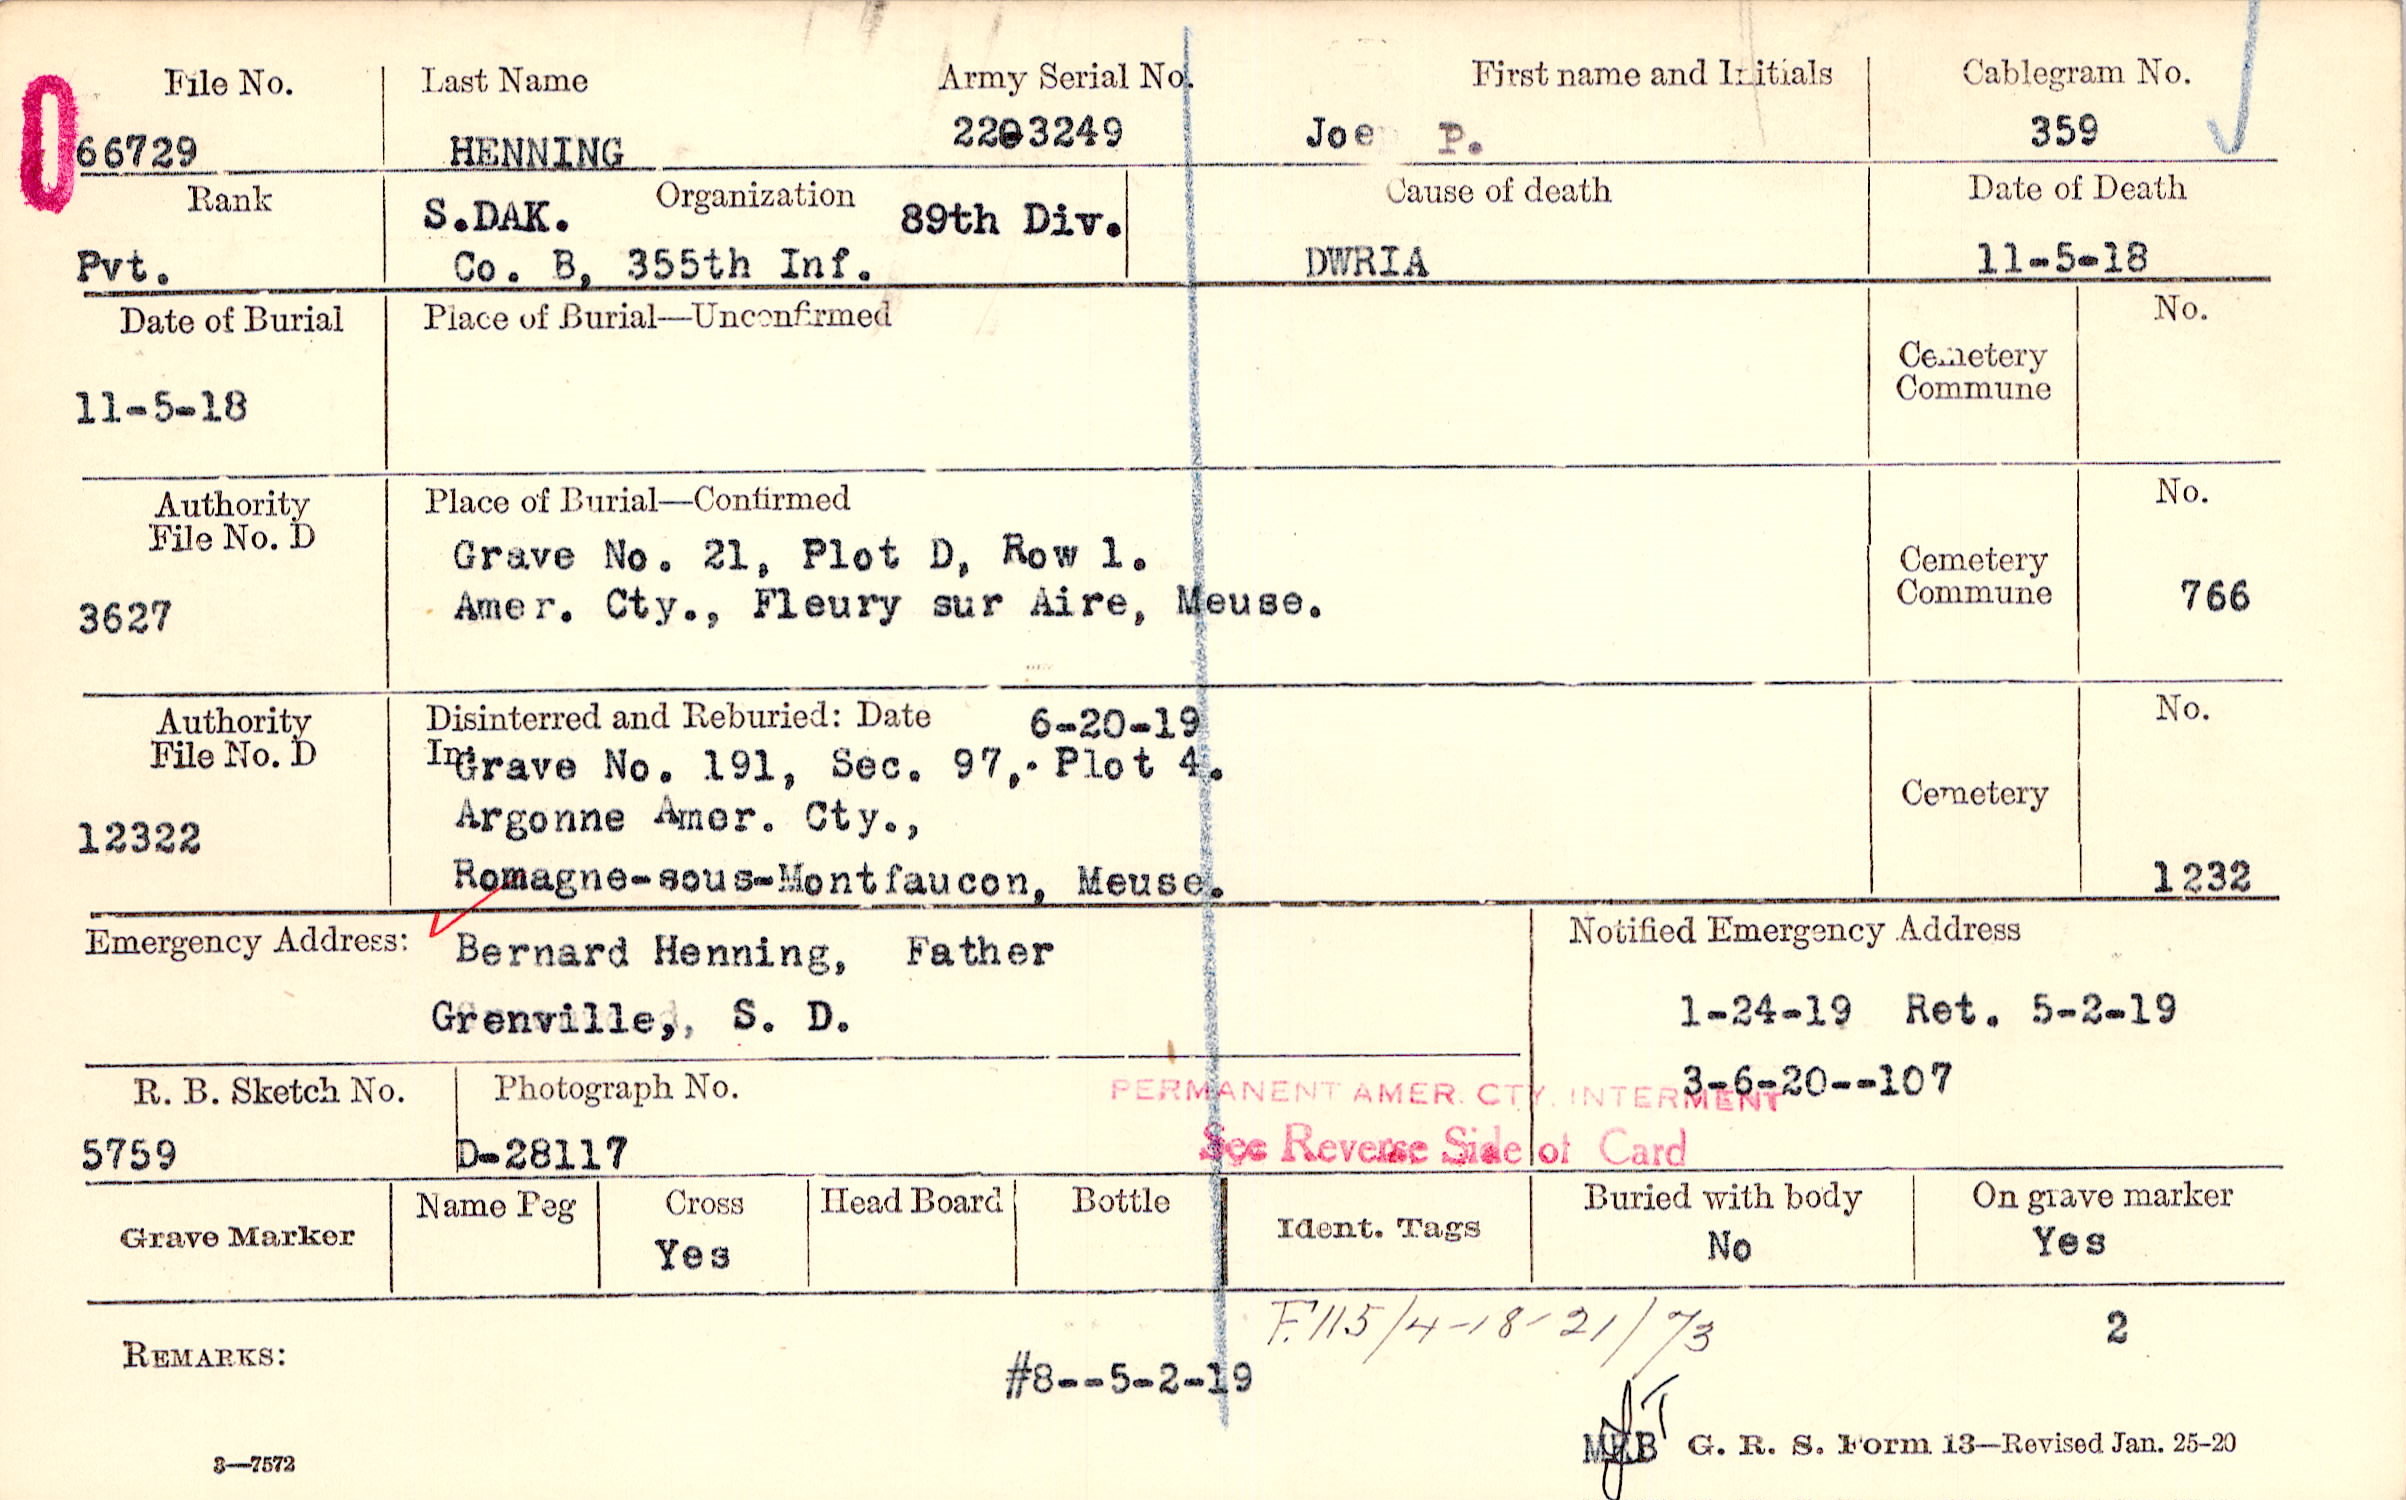 File No. Last Name Army Serial No. First name and Initials Cablegram No.
66729 HENNING 2203249 Joe P. 359
Rank S.DAK. Organization 89th Div. Cause of death Date of Death
Pvt. Co. B, 355th Inf. DWRIA 11-5-18
Date of Burial Place of Burial—Unconfirmed No.
Cemetery
Commune
11-5-18
Authority Place of Burial—Confirmed No.
File No. D
Grave No. 21, Plot D, Row 1. Cemetery
3627 Amer. Cty., Fleury sur Aire, Meuse. Commune 766
Authority Disinterred and Reburied: Date 6-20-19 No.
File No. D In Grave No. 191, Sec. 97, Plot 4.
Argonne Amer. Cty., Cemetery
12322
Romagne-sous-Montfaucon, Meuse. 1232
Emergency Address: Bernard Henning, Father Notified Emergency Address
Grenville, S. D. 1-24-19 Ret. 5-2-19
R. B. Sketch No. Photograph No. PERMANENT AMER. CTY. INTERMENT 3-6-20--107
5759 D-28117 See Reverse Side of Card
Grave Marker Name Peg Cross Head Board Bottle Ident. Tags Buried with body On grave marker
Yes No Yes
F.115/4-18-21/73 2
REMARKS: #8--5-2-19
3—7572 G. R. S. Form 13—Revised Jan. 25-20